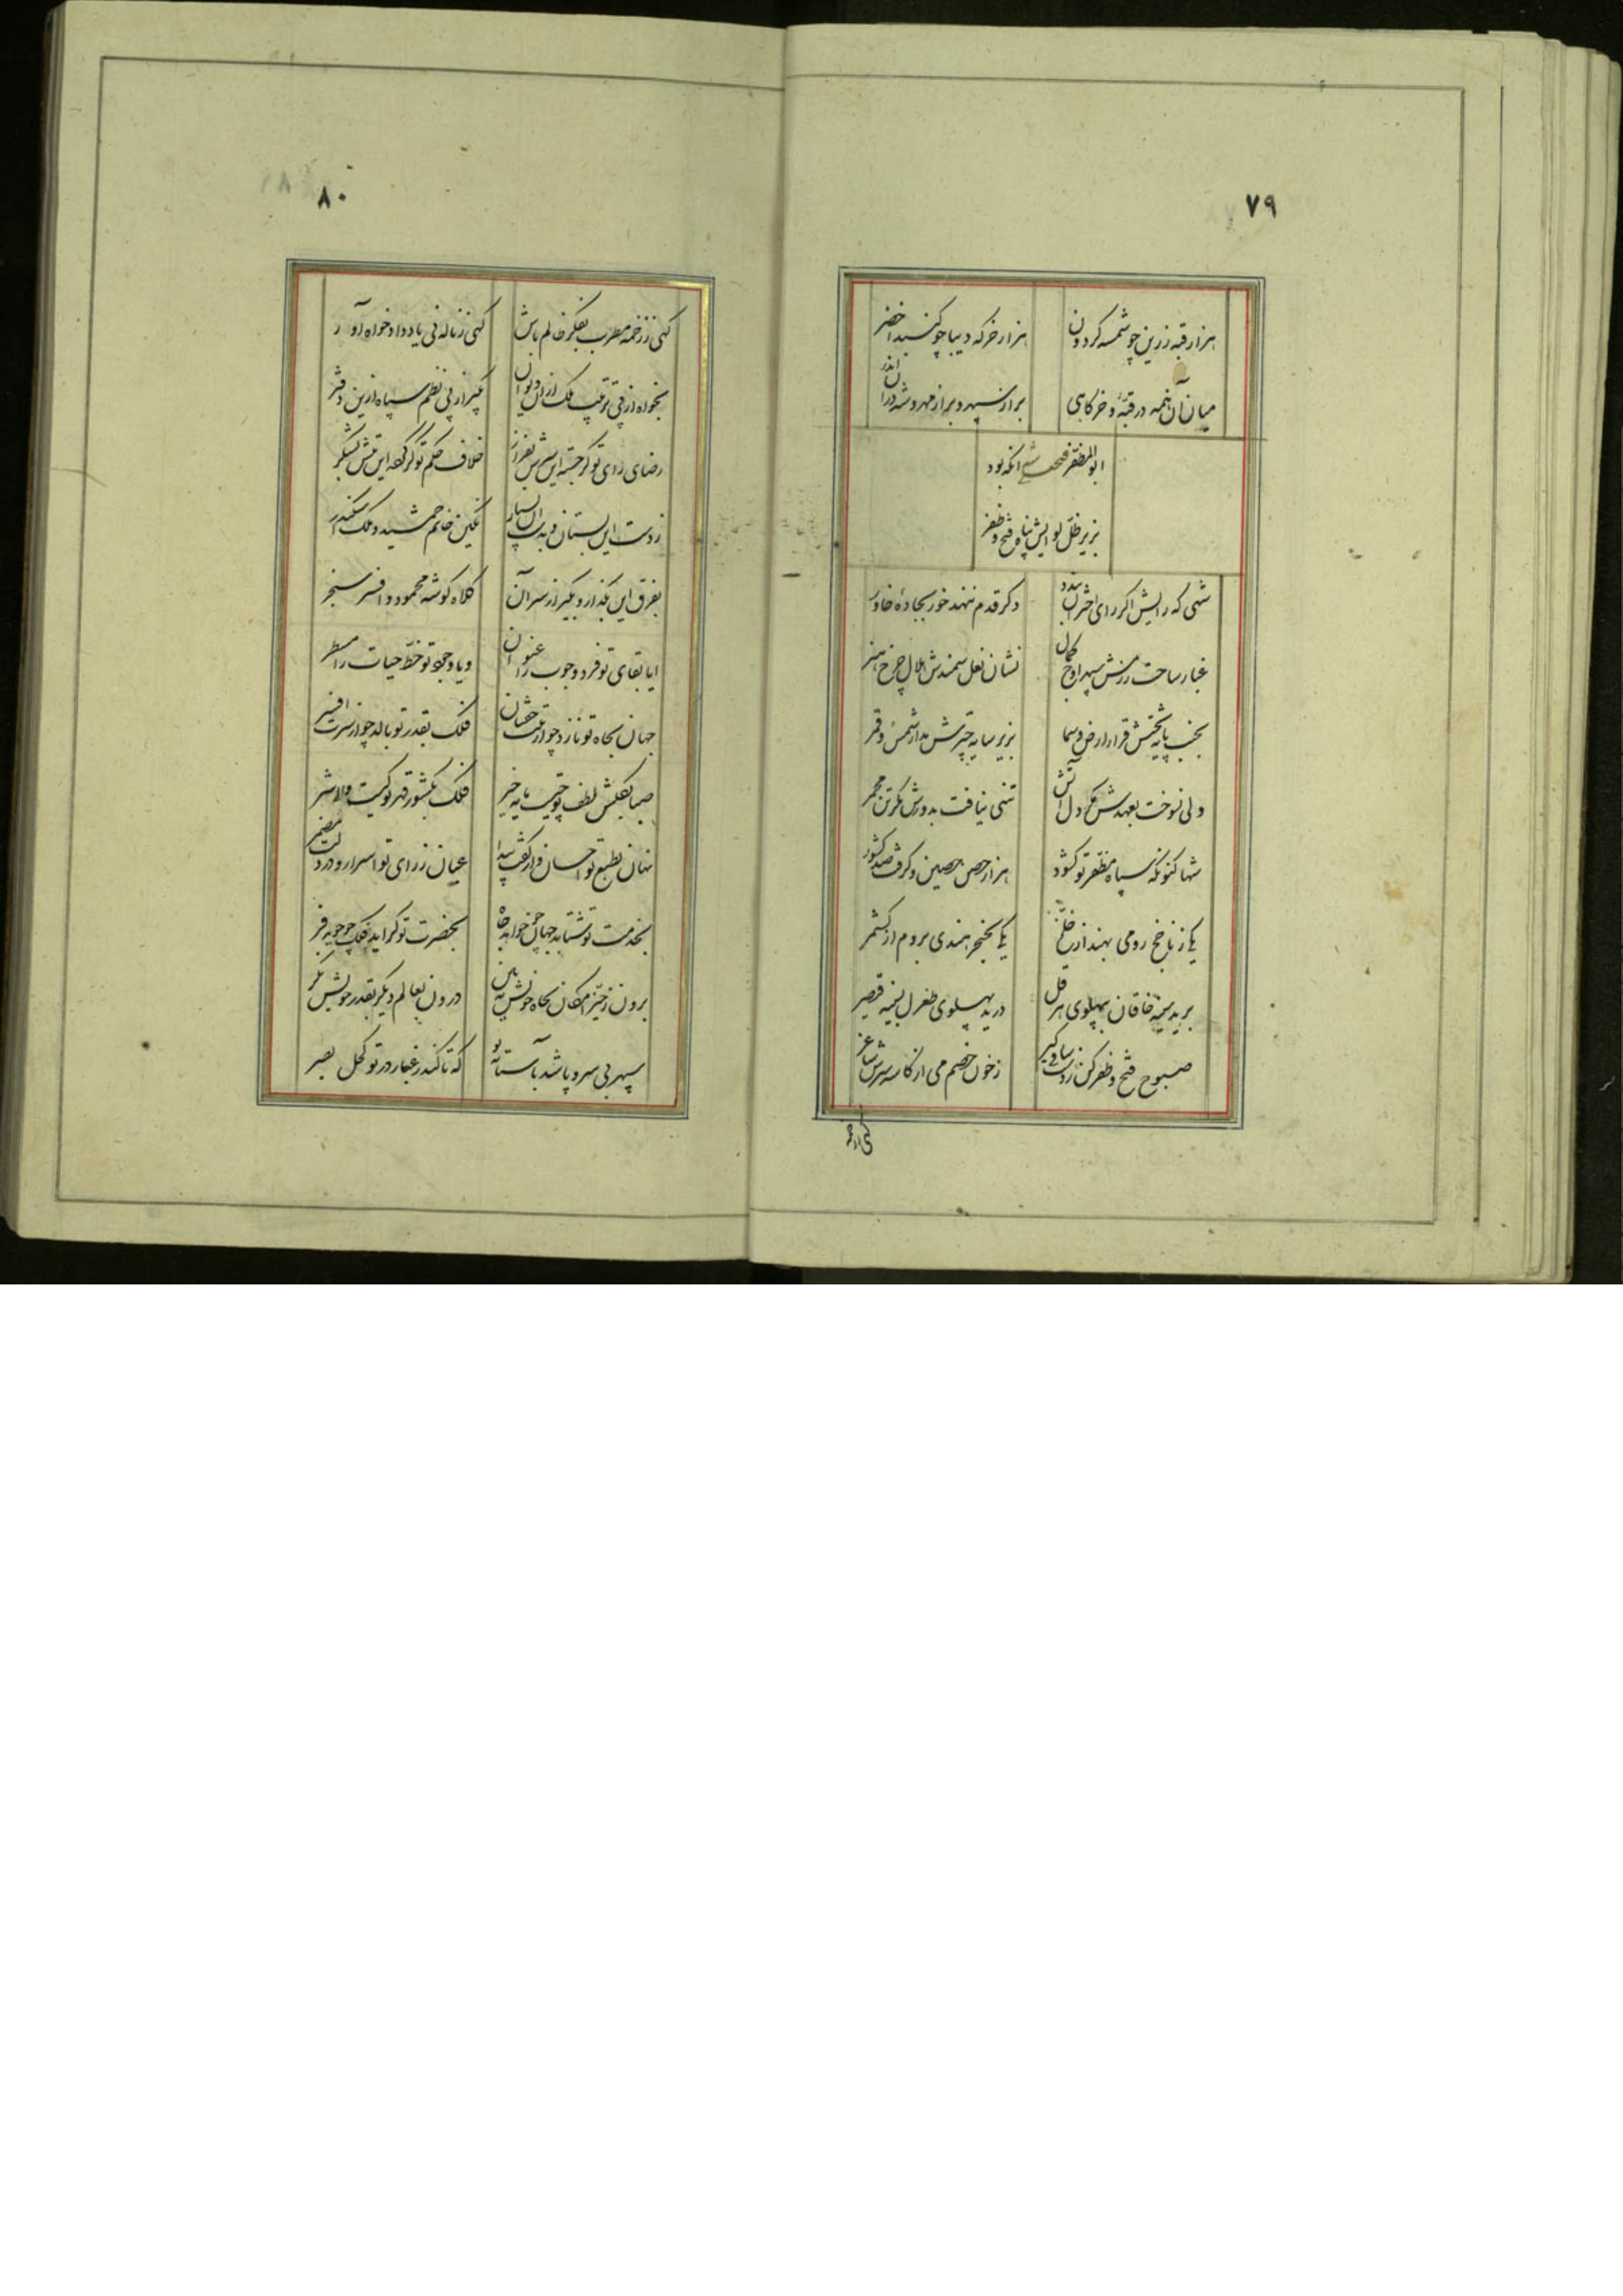 ۷۹
هزار قبه زرین چو شمسه گردون
هزار خرگه دیبا چو گنبد اخضر
میان آن همه در قبه و خرگاهی
براز سپهر و براز مهر و شه دران اندر
ابوالمظفر فتحعلی شه آنکه بود
بزیر ظل لوایش پناه فتح و ظفر
شهی که رایش اگر رای اختران نبدد
دگر قدم ننهد خور بجادهٔ خاور
غبار ساحت رزمش سپهر اوج کمال
نشان نعل سمندش هلال چرخ هنر
بجنب پایه تختش قرار ارض و سما
بزیر سایه چترش مدار شمس و قمر
دلی نسوخت بعهدش مگر دل آتش
تنی نیافت بدورش مگر تن مجمر
شها کنونکه سپاه مظفر تو گشود
هزار حصن حصین و گرفت صد کشور
یکی زناچخ رومی بهند از خلخ
یکی بخنجر هندی بروم از کشمر
برید سینه خاقان بپهلوی هرقل
درید پهلوی طغرل بسینه قیصر
صبوح فتح و ظفر کن زدست ساقی گیر
زخون خصم می از کاسه سرش ساغر
گهی زخمه
۸۰
گهی ززخمه مطرب بفکر ظالم باش
گهی زناله نی یاد دادخواه آور
بخواه از پی ترتیب ملک ازان دیوان
بگیر از پی نظم سپاه ازین دفتر
رضای رای تو گر جسته این سرش بفراز
خلاف حکم تو گر گفته این تنش بشکر
زدست این بستان و بدست آن بسپار
نگین خاتم جمشید و ملک اسکندر
بفرق این بگذار و بگیر از سر آن
کلاه گوشه محمود و افسر سنجر
ایا بقای تو فرد وجوب را عنوان
ویا وجود تو خط حیات را مسطر
جهان بجاه تو نازد چو از تنت خفتان
فلک بقدر تو بالد چو از سرت افسر
صبا بگلشن لطف تو چیست پایه خیر
فلک بکشور قهر تو کیست والا شر
نهان بطبع تو احسان و از کفت پیدا
عیان زرای تو اسرار و در دلت مضمر
بخدمت تو شتابد جهان چو خواهد جاه
بحضرت تو گراید فلک چو جوید فر
برون زحیز امکان بجاه خویش ببین
درون بعالم دیگر بقدر خویش نگر
سپهر بی سر و پا شد بآستانه تو
که تا کند زغبار در تو کحل بصر